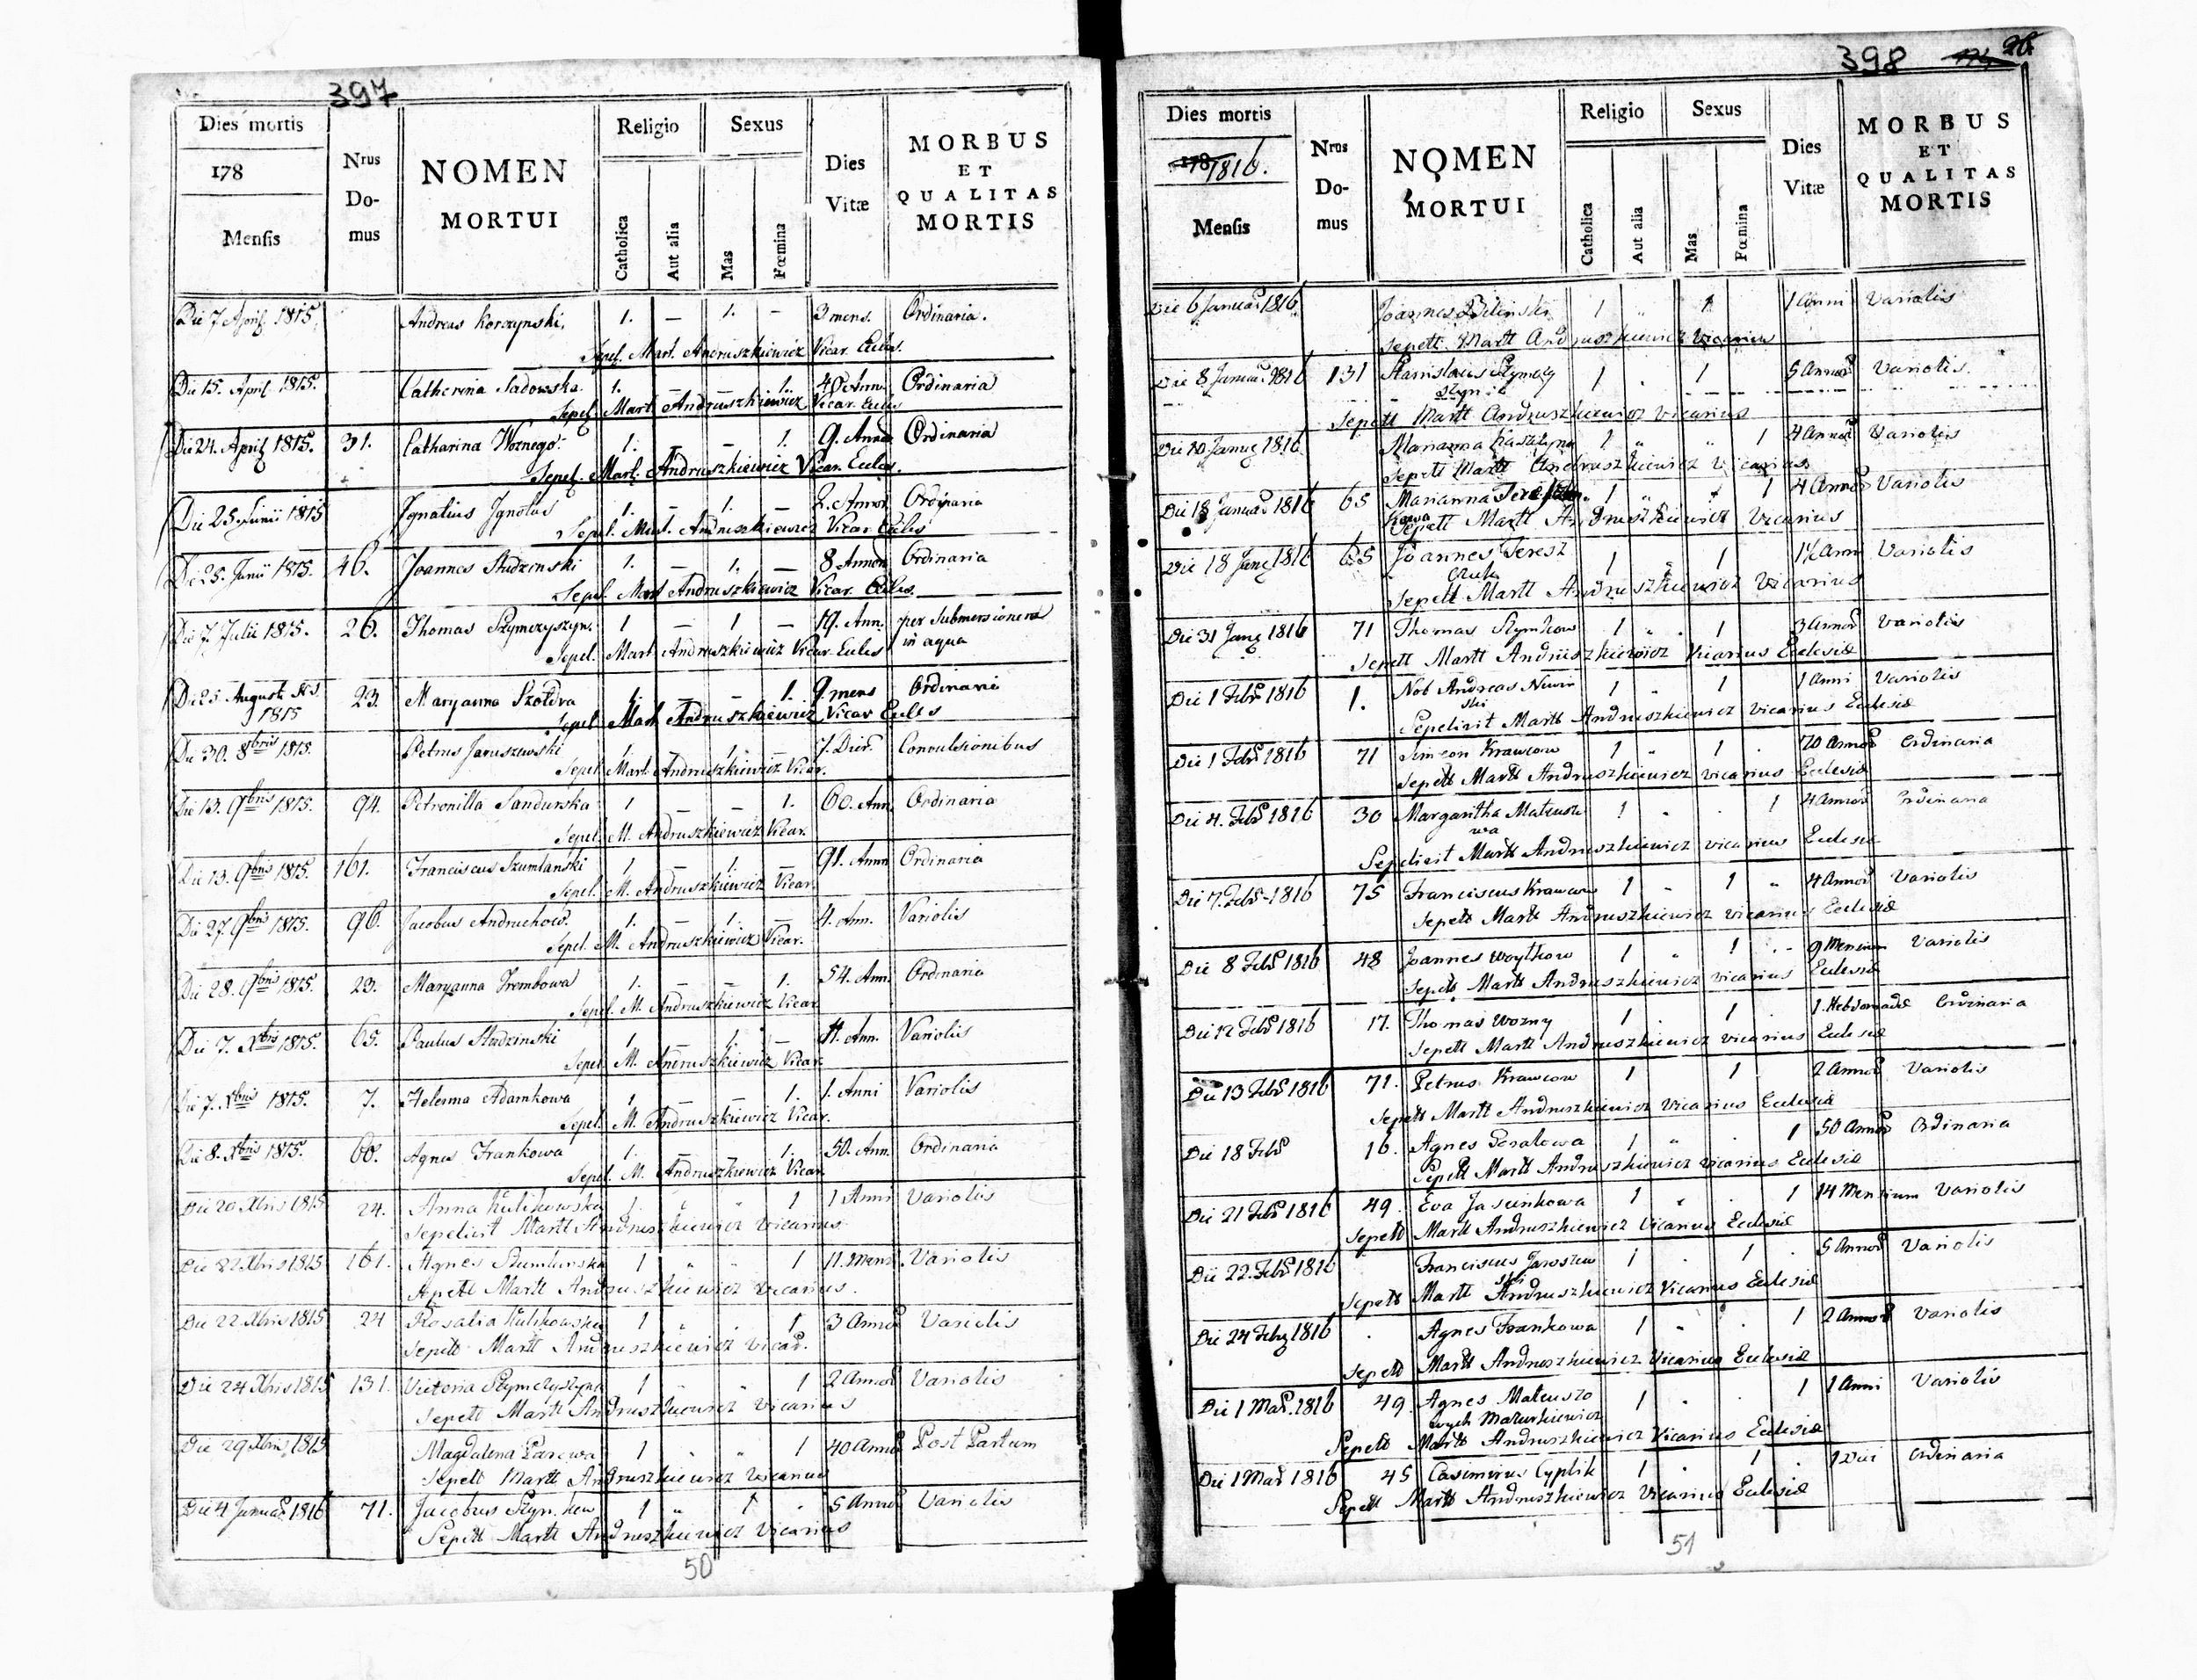 397
Dies mortis
178
Mensis
Nrus Domus
NOMEN MORTUI
Religio
Catholica
Aut alia
Sexus
Mas
Fœmina
Dies Vitæ
MORBUS ET QUALITAS MORTIS
Die 7 April 1815. Andreas Korzynski. 1. — 1. — 3 mens. Ordinaria.
Sepel. Mart. Andruszkiewicz Vicar. Eccles.
Die 15. April. 1815. Catherina Sadowska. 1. — — 1. 40 Ann. Ordinaria
Sepel. Mart. Andruszkiewicz Vicar. Eccles
Die 24. April 1815. 31. Catharina Woznego. 1. — — 1. 9. Anno Ordinaria
Sepel. Mart. Andruszkiewicz Vicar. Eccles.
Die 25 Junii 1815 Ignatius Ignotus 1. — 1. — 2. Annor Ordinaria
Sepel. Mart. Andruszkiewicz Vicar Eccles
Die 25. Junii 1815. 46. Joannes Studzenski 1. — 1. — 8 Annor Ordinaria
Sepel. Mart Andruszkiewicz Vicar. Eccles.
Die 7. Julii 1815. 26. Thomas Szymczyszyn. 1 — 1 — 19. Ann. per submersionem
in aqua
Sepel. Mart. Andruszkiewicz Vicar. Eccles
Die 25 Augusti 1815 23. Maryanna Szoldra 1. — — 1. 9 mens Ordinaria
Sepel. Mart. Andruszkiewicz Vicar Eccles
Die 30. 8bris 1815. Petrus Jaruszewski 1. — 1. — 7. Dier. Convulsionibus
Sepel. Mart. Andruszkiewicz Vicar.
Die 13. 9bris 1815. 94. Petronilla Sandurska 1 — — 1. 60. Ann Ordinaria
Sepel. M. Andruszkiewicz Vicar.
Die 13. 9bris 1815. 161. Franciscus Szumlanski 1. — 1. — 91. Ann Ordinaria
Sepel. M. Andruszkiewicz Vicar.
Die 27. 9bris 1815. 96. Jacobus Andruchow. 1. — 1. — 4. Ann. Variolis
Sepel. M. Andruszkiewicz Vicar.
Die 28. 9bris 1815. 23. Maryanna Trembowa 1. — — 1. 54. Ann. Ordinaria
Sepel. M. Andruszkiewicz Vicar
Die 7. Xbris 1815. 65. Paulus Studzinski 1. — 1. — 4. Ann. Variolis
Sepel. M. Andruszkiewicz Vicar
Die 7. Xbris 1815. 7. Helenna Adamkowa 1. — — 1. 1. Anni Variolis
Sepel. M. Andruszkiewicz Vicar.
Die 8. Xbris 1815. 60. Agnes Frankowa 1. — — 1. 50. Ann. Ordinaria
Sepel. M. Andruszkiewicz Vicar
Die 20 Xbris 1815 24. Anna Kulikowska 1 " " 1 1 Anni Variolis
Sepelivit Martt Andruszkiewicz Vicarius
Die 22 Xbris 1815 161. Agnes Szumlanska 1 " " 1 11. Mens. Variolis
Sepelt Martt Andruszkiewicz Vicarius.
Die 22 Xbris 1815 24 Rosalia Kulikowska 1 " . 1 3 Annor Variolis
Sepelt Martt Andruszkiewicz Vicar.
Die 24 Xbris 1815 131. Victoria Szymczyszyna 1 " " 1 2 Annor Variolis
Sepelt Martt Andruszkiewicz Vicarius
Die 29 Xbris 1815 Magdalena Parewa 1 " " 1 40 Annor Post Partum
Sepelt Martt Andruszkiewicz Vicarius
Die 4 Januar 1816 71. Jacobus Szymkow 1 " 1 . 5 Annor Variolis
Sepelt Martt Andruszkiewicz Vicarius
50
398 26
Dies mortis
1816.
Mensis
Nros Domus
NOMEN MORTUI
Religio
Catholica
Aut alia
Sexus
Mas
Fœmina
Dies Vitæ
MORBUS ET QUALITAS MORTIS
Die 6 Januar 1816. Joannes Bilinski 1 " 1 1 Anni Variolis
Sepelt Martt Andruszkiewicz Vicarius
Die 8 Januar 1816 131 Stanislaus Szymczy
szyn 1 . 1 5 Annor Variolis.
Sepelt Martt Andruszkiewicz Vicarius
Die 10 Januar 1816 Marianna 1 " " 1 4 Annor Variolis
Sepelt Martt Andruszkiewicz Vicarius
Die 18 Januar 1816 65 Marianna 1 " 1 4 Annor Variolis
Sepelt Martt Andruszkiewicz Vicarius
Die 18 Januar 1816 65 Joannes Teresz
czuk 1 " 1 1½ Anni Variolis
Sepelt Martt Andruszkiewicz Vicarius
Die 31 Januar 1816 71 Thomas Szymkow 1 " . 1 3 Annor Variolis
Sepelt Martt Andruszkiewicz Vicarius Ecclesiæ
Die 1 Febr 1816 1. Nob Andreas Niwin
ski 1 " 1 1 Anni Variolis
Sepelivit Martt Andruszkiewicz Vicarius Ecclesiæ
Die 1 Febr 1816 71 Simeon Krawcow 1 " 1 . 70 Annor Ordinaria
Sepelt Martt Andruszkiewicz Vicarius Ecclesiæ
Die 4. Febr 1816 30 Margaritha Mateusz
wa 1 " . 1 4 Annor Ordinaria
Sepelivit Martt Andruszkiewicz Vicarius Ecclesiæ
Die 7. Febr 1816 75 Franciscus Krawcow 1 " 1 " 4 Annor Variolis
Sepelt Martt Andruszkiewicz Vicarius Ecclesiæ
Die 8 Febr 1816 48 Joannes Woytkow 1 " 1 . 9 Mensium Variolis
Sepelt Martt Andruszkiewicz Vicarius Ecclesiæ
Die 12 Febr 1816 17. Thomas Wozny 1 . 1 . 1. Hebdomadæ Ordinaria
Sepelt Martt Andruszkiewicz Vicarius Ecclesiæ
Die 13 Febr 1816 71. Petrus Krawcow 1 1 2 Annor Variolis
Sepelt Martt Andruszkiewicz Vicarius Ecclesiæ
Die 18 Febr 16. Agnes 1 " . 1 50 Annor Ordinaria
Sepelt Martt Andruszkiewicz Vicarius Ecclesiæ
Die 21 Febr 1816 49. Eva Jasinkowa 1 " . 1 14 Mensium Variolis
Sepelt Martt Andruszkiewicz Vicarius Ecclesiæ
Die 22. Febr 1816 Franciscus Jaroszew
ski 1 . 1 . 5 Annor Variolis
Sepelt Martt Andruszkiewicz Vicarius Ecclesiæ
Die 24 Febr 1816 Agnes Frankowa 1 " " 1 2 Annor Variolis
Sepelt Martt Andruszkiewicz Vicarius Ecclesiæ
Die 1 Mar. 1816 49. Agnes Mateuszo
wych Mazurkiewicz 1 " . 1 1 Anni Variolis
Sepelt Martt Andruszkiewicz Vicarius Ecclesiæ
Die 1 Mar 1816 45 Casimirus Cyplik 1 " 1 . 1 Diei Ordinaria
Sepelt Martt Andruszkiewicz Vicarius Ecclesiæ
51